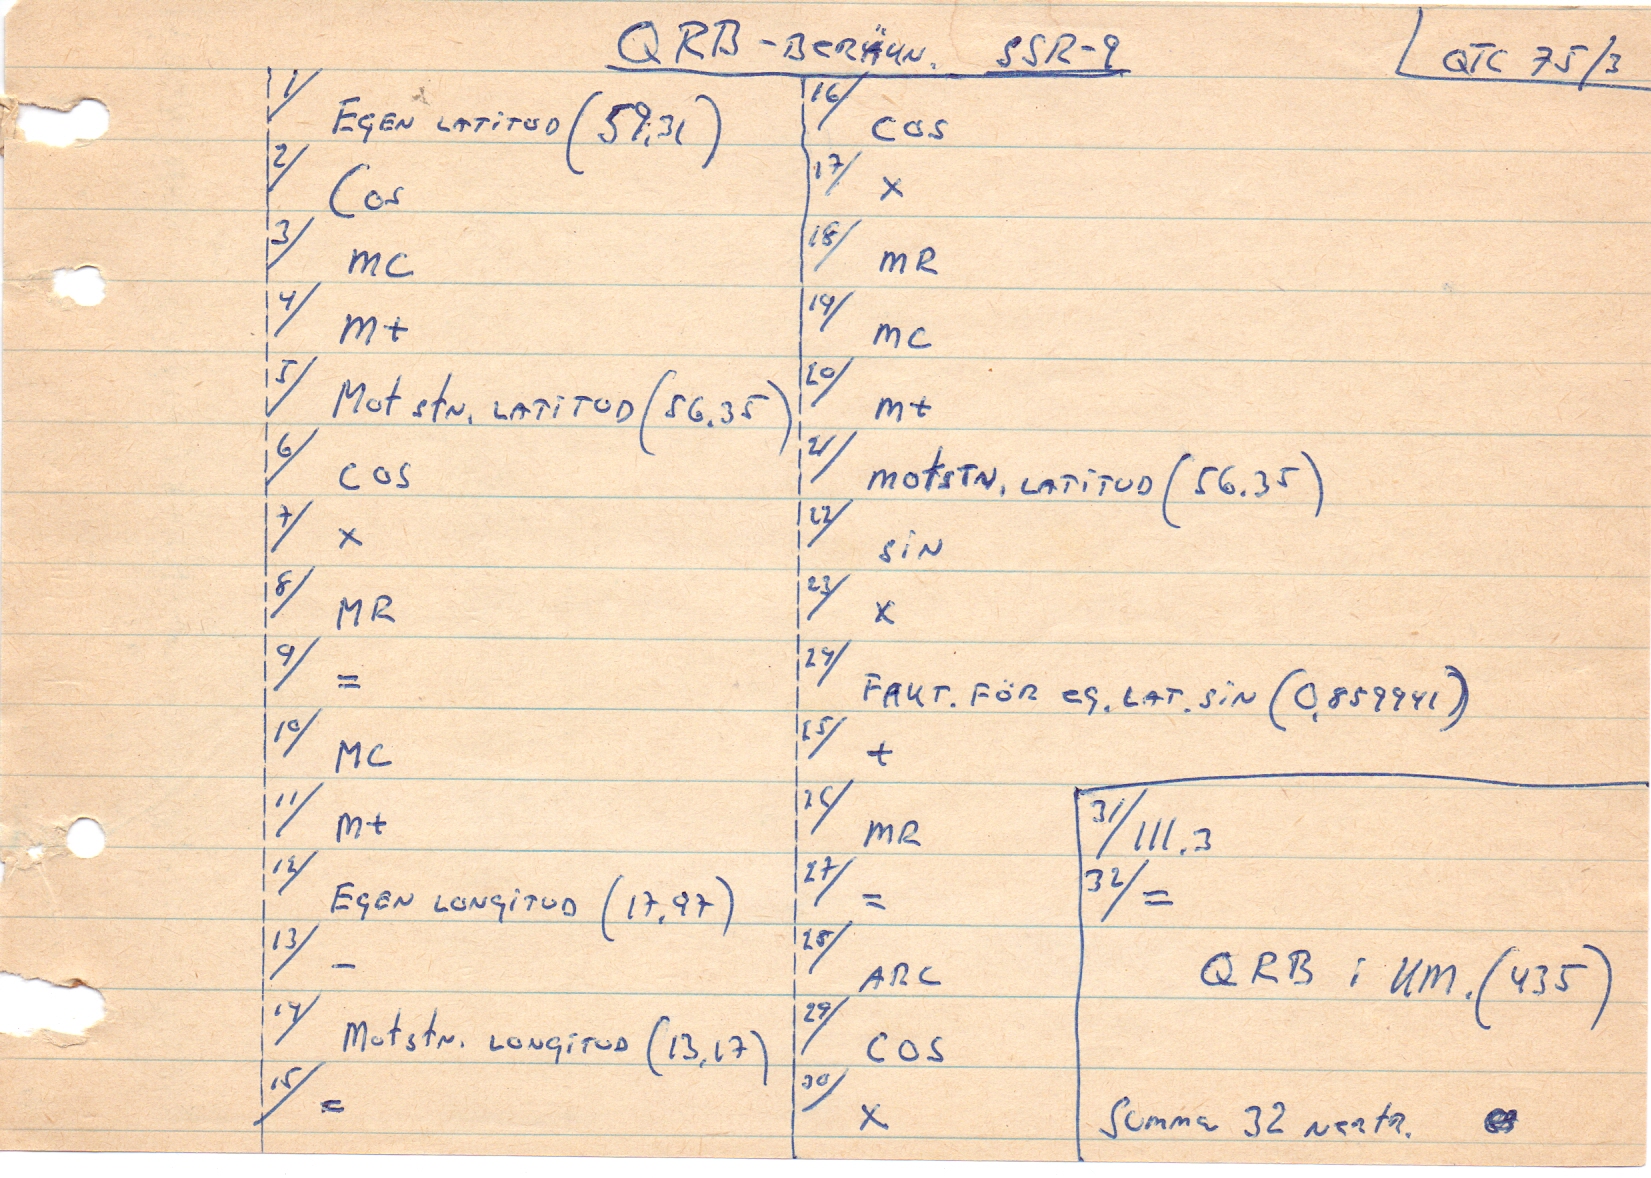 QRB-BERÄKN. SSR-9
QTC 75/3
1/ EGEN LATITUD (59,31)
2/ COS
3/ MC
4/ M+
5/ Motstn. LATITUD (56.35)
6/ COS
7/ x
8/ MR
9/ =
10/ MC
11/ M+
12/ EGEN LONGITUD (17,97)
13/ -
14/ Motstn. LONGITUD (13,17)
15/ =
16/ COS
17/ x
18/ MR
19/ MC
20/ M+
21/ MOTSTN. LATITUD (56.35)
22/ SIN
23/ x
24/ FAKT. FÖR EG. LAT. SIN (0,859941)
25/ +
26/ MR
27/ =
28/ ARC
29/ COS
30/ x
31/ 111.3
32/ =
QRB i KM. (435)
Summa 32